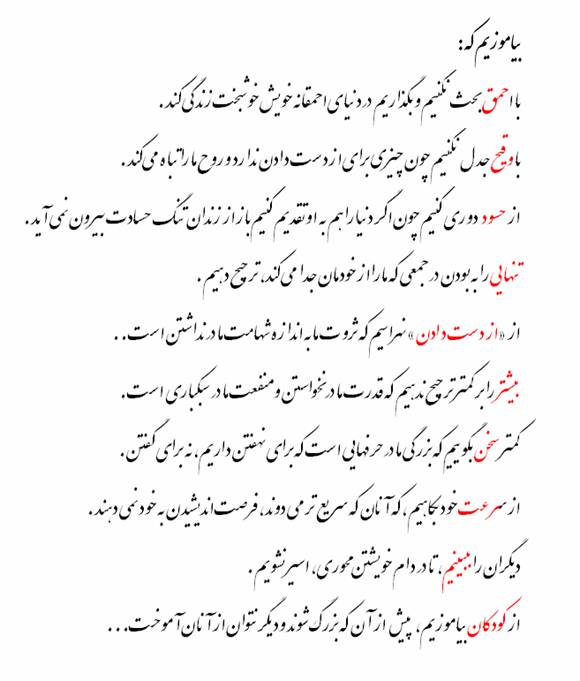 بیاموزیم که :
با احمق بحث نکنیم و بگذاریم در دنیای احمقانه خویش خوشبخت زندگی کند .
با وقیح جدل نکنیم چون چیزی برای از دست دادن ندارد و روح ما را تباه می کند .
از حسود دوری کنیم چون اگر دنیا را هم به او تقدیم کنیم باز از زندان تنگ حسادت بیرون نمی آید .
تنهایی را به بودن در جمعی که ما را از خودمان جدا می کند، ترجیح دهیم .
از « از دست دادن » نهراسیم که ثروت ما به اندازه شهامت ما در نداشتن است . .
بیشتر را بر کمتر ترجیح ندهیم که قدرت ما در نخواستن و منفعت ما در سبکباری است.
کمتر سخن بگوییم که بزرگی ما در حرفهایی است که برای نهفتن داریم، نه برای گفتن .
از سرعت خود بکاهیم ، که آنان که سریع تر می دوند، فرصت اندیشیدن به خود نمی دهند .
دیگران را ببینیم ، تا در دام خویشتن محوری، اسیر نشویم .
از کودکان بیاموزیم، پیش از آن که بزرگ شوند و دیگر نتوان از آنان آموخت . . .